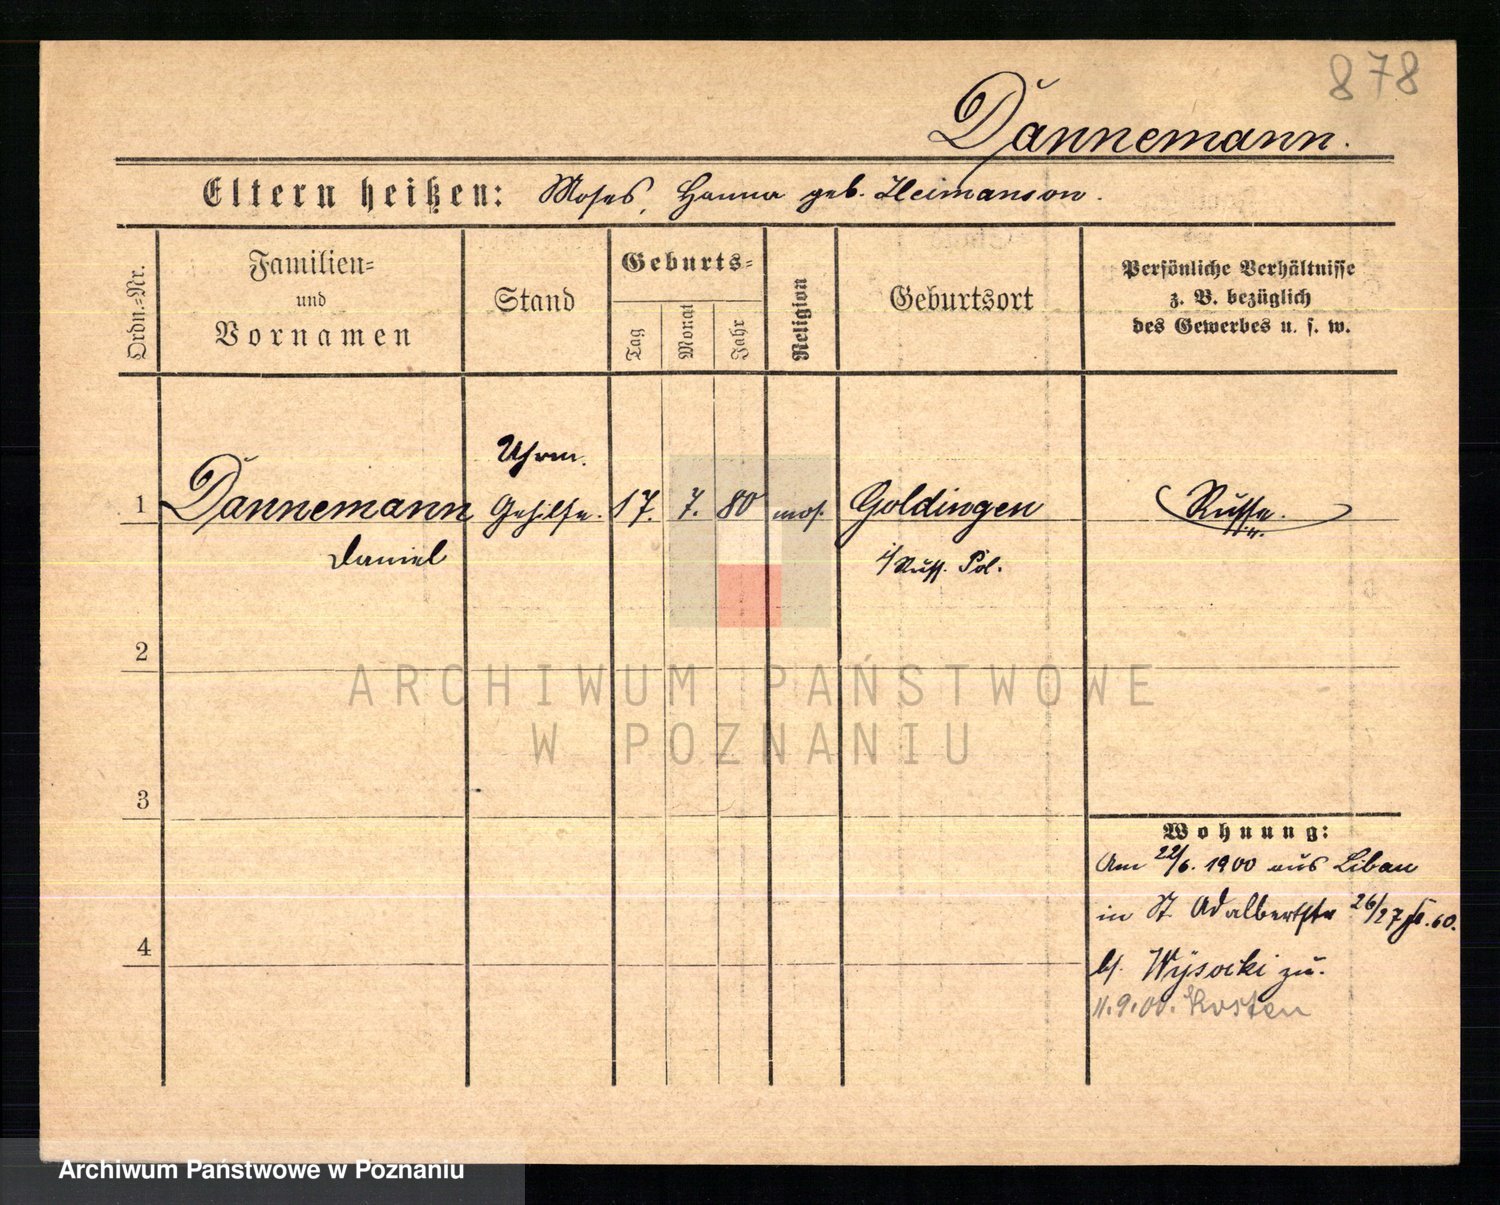 878
Dannemann.
Eltern heißen: Moses, Hanna geb. Heimanson.
Ordn.=Nr.
Familien=
und
Vornamen
Stand
Geburts=
Tag
Monat
Jahr
Religion
Geburtsort
Persönliche Verhältnisse
z. B. bezüglich
des Gewerbes u. s. w.
Uhrm.
1 Dannemann Gehilfe. 17. 7. 80 mos. Goldingen Russe.
Daniel i/Russ. Pol.
2
ARCHIWUM PAŃSTWOWE
W POZNANIU
3
Wohnung:
Am 22/6. 1900 aus Libau
in St. Adalbertstr 26/27 .60.
4
bf. Wysocki zu.
11.9.00. Kosten
Archiwum Państwowe w Poznaniu